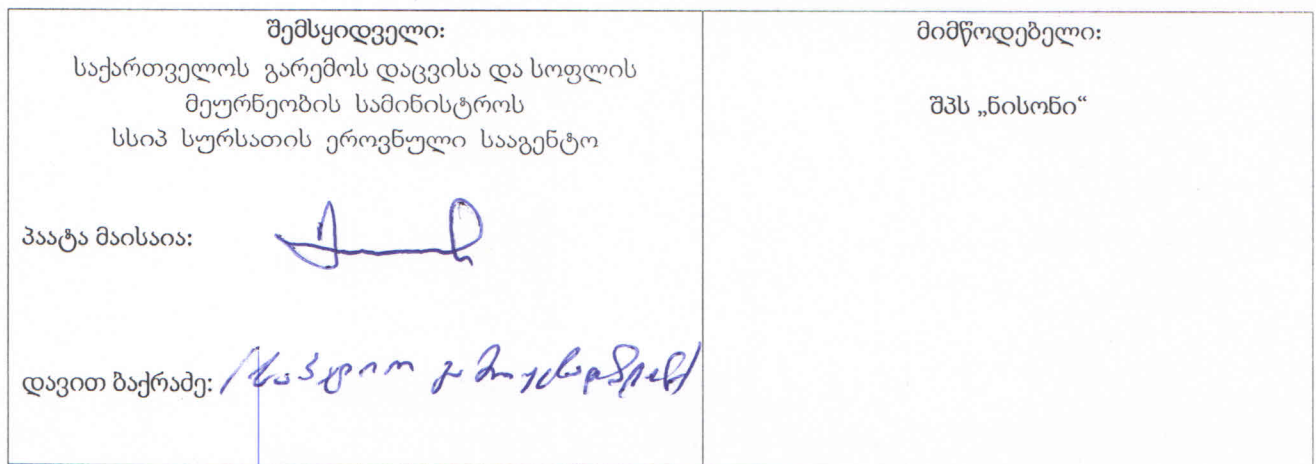 შემსყიდველი:
საქართველოს გარემოს დაცვისა და სოფლის
მეურნეობის სამინისტროს
სსიპ სურსათის ეროვნული სააგენტო
პაატა მაისაია:
დავით ბაქრაძე:
მიმწოდებელი:
შპს „ნისონი“